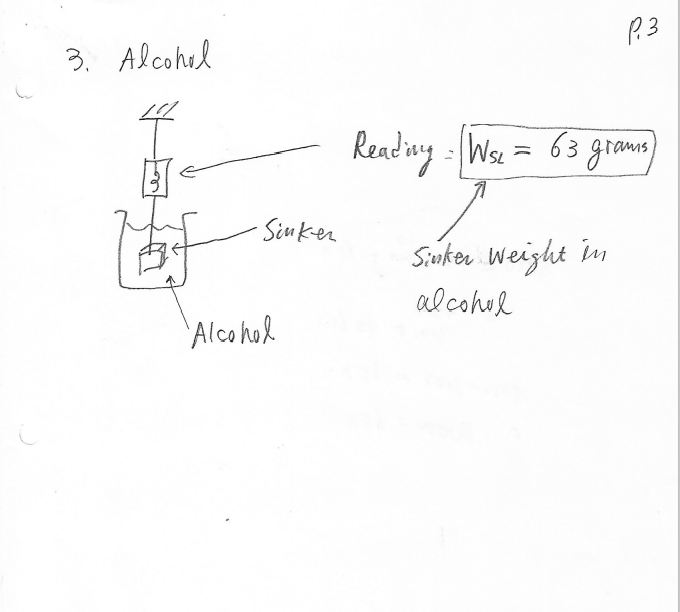 P.3
3. Alcohol
Reading = WSL = 63 grams
Sinker
Sinker Weight in
alcohol
Alcohol